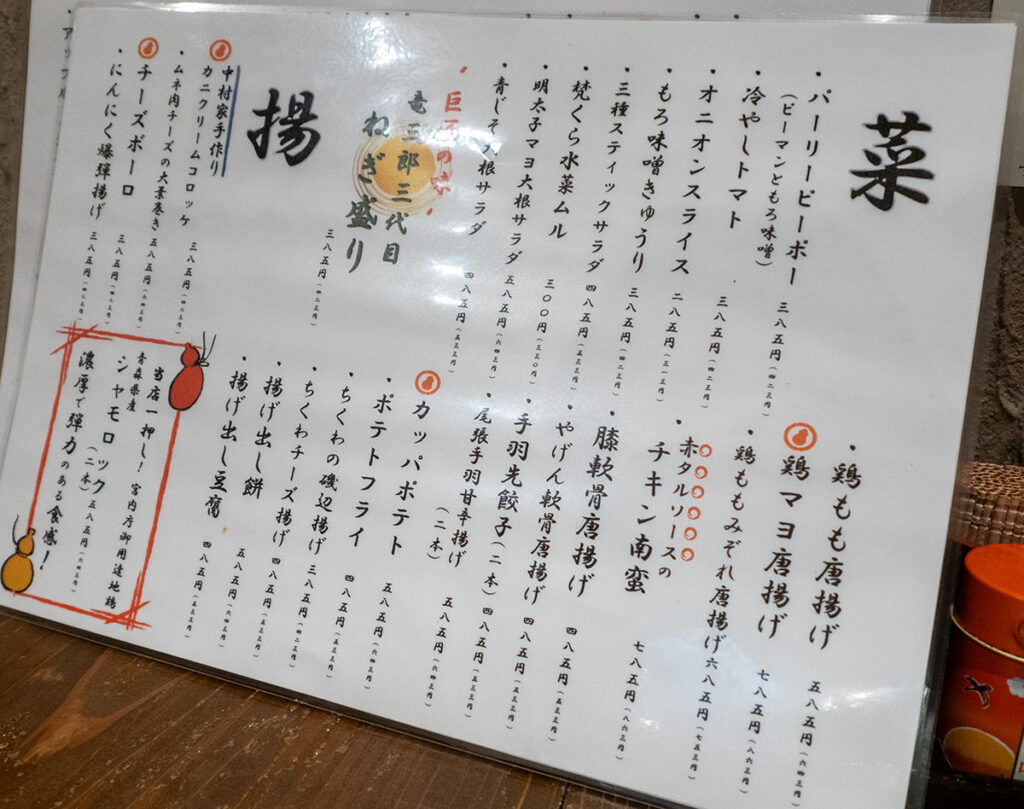 菜
・パーリーピーポー
(ピーマンともろ味噌)
三八五円(四二三円)
・冷やしトマト
三八五円(四二三円)
・オニオンスライス
二八五円(三一三円)
・もろ味噌きゅうり
三八五円(四二三円)
・三種スティックサラダ
四八五円(五三三円)
・梵くら水菜ムル
三〇〇円(三三〇円)
・明太子マヨ大根サラダ
五八五円(六四三円)
・青じそ大根サラダ
四八五円(五三三円)
巨匠の味
竜三郎三代目
ねぎ盛り
三八五円(四二三円)
揚
中村家手作り
カニクリームコロッケ
三八五円(四二三円)
・ムネ肉チーズの大葉巻き
五八五円(六四三円)
チーズボーロ
三八五円(四二三円)
・にんにく爆弾揚げ
三八五円(四二三円)
・鶏もも唐揚げ
五八五円(六四三円)
鶏マヨ唐揚げ
七八五円(八六三円)
・鶏ももみぞれ唐揚げ
六八五円(七五三円)
・赤タルソースの
チキン南蛮
七八五円(八六三円)
・膝軟骨唐揚げ
四八五円(五三三円)
・やげん軟骨唐揚げ
四八五円(五三三円)
・手羽先餃子(二本)
四八五円(五三三円)
・尾張手羽甘辛揚げ
(二本)
五八五円(六四三円)
カッパポテト
五八五円(六四三円)
・ポテトフライ
四八五円(五三三円)
・ちくわの磯辺揚げ
三八五円(四二三円)
・ちくわチーズ揚げ
四八五円(五三三円)
・揚げ出し餅
五八五円(六四三円)
・揚げ出し豆腐
四八五円(五三三円)
当店一押し!宮内庁御用達地鶏
青森県産
シャモロック
(二本)
五八五円(六四三円)
濃厚で弾力のある食感!